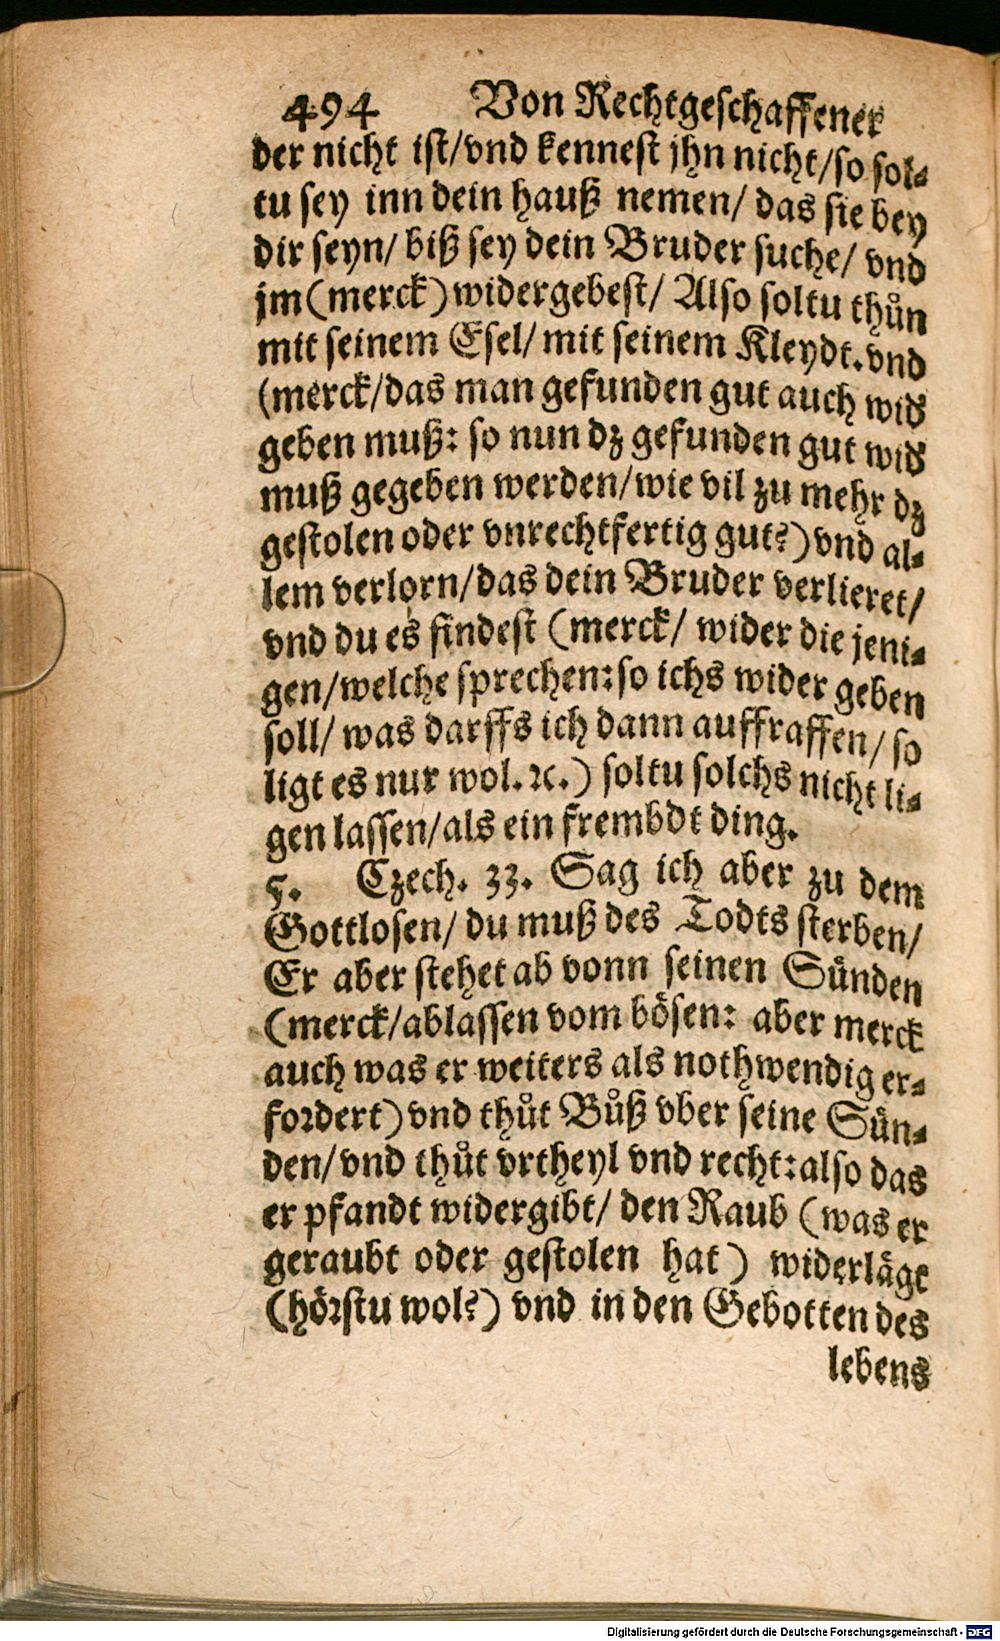 494 Von Rechtgeschaffener
der nicht ist/vnd kennest jhn nicht/so sol⸗
tu sey inn dein hauß nemen/ das sie bey
dir seyn/ biß sey dein Bruder suche/ vnd
jm (merck) widergebest/ Also soltu thůn
mit seinem Esel/ mit seinem Kleydt. vnd
(merck/das man gefunden gut auch wid
geben muß: so nun dz gefunden gut wid
muß gegeben werden/wie vil zu mehr dz
gestolen oder vnrechtfertig gut?) vnd al⸗
lem verlorn/das dein Bruder verlieret/
vnd du es findest (merck/ wider die jeni⸗
gen/welche sprechen: so ichs wider geben
soll/ was darffs ich dann auffraffen/ so
ligt es nur wol. ꝛc.) soltu solchs nicht li⸗
gen lassen/als ein frembdt ding.
5. Czech. 33. Sag ich aber zu dem
Gottlosen/ du muß des Todts sterben/
Er aber stehet ab vonn seinen Sünden
(merck/ablassen vom bösen: aber merck
auch was er weiters als nothwendig er⸗
fordert) vnd thůt Bůß vber seine Sün⸗
den/ vnd thůt vrtheyl vnd recht: also das
er pfandt widergibt/ den Raub (was er
geraubt oder gestolen hat) widerlägt
(hörstu wol?) vnd in den Gebotten des
lebens
Digitalisierung gefördert durch die Deutsche Forschungsgemeinschaft - DFG